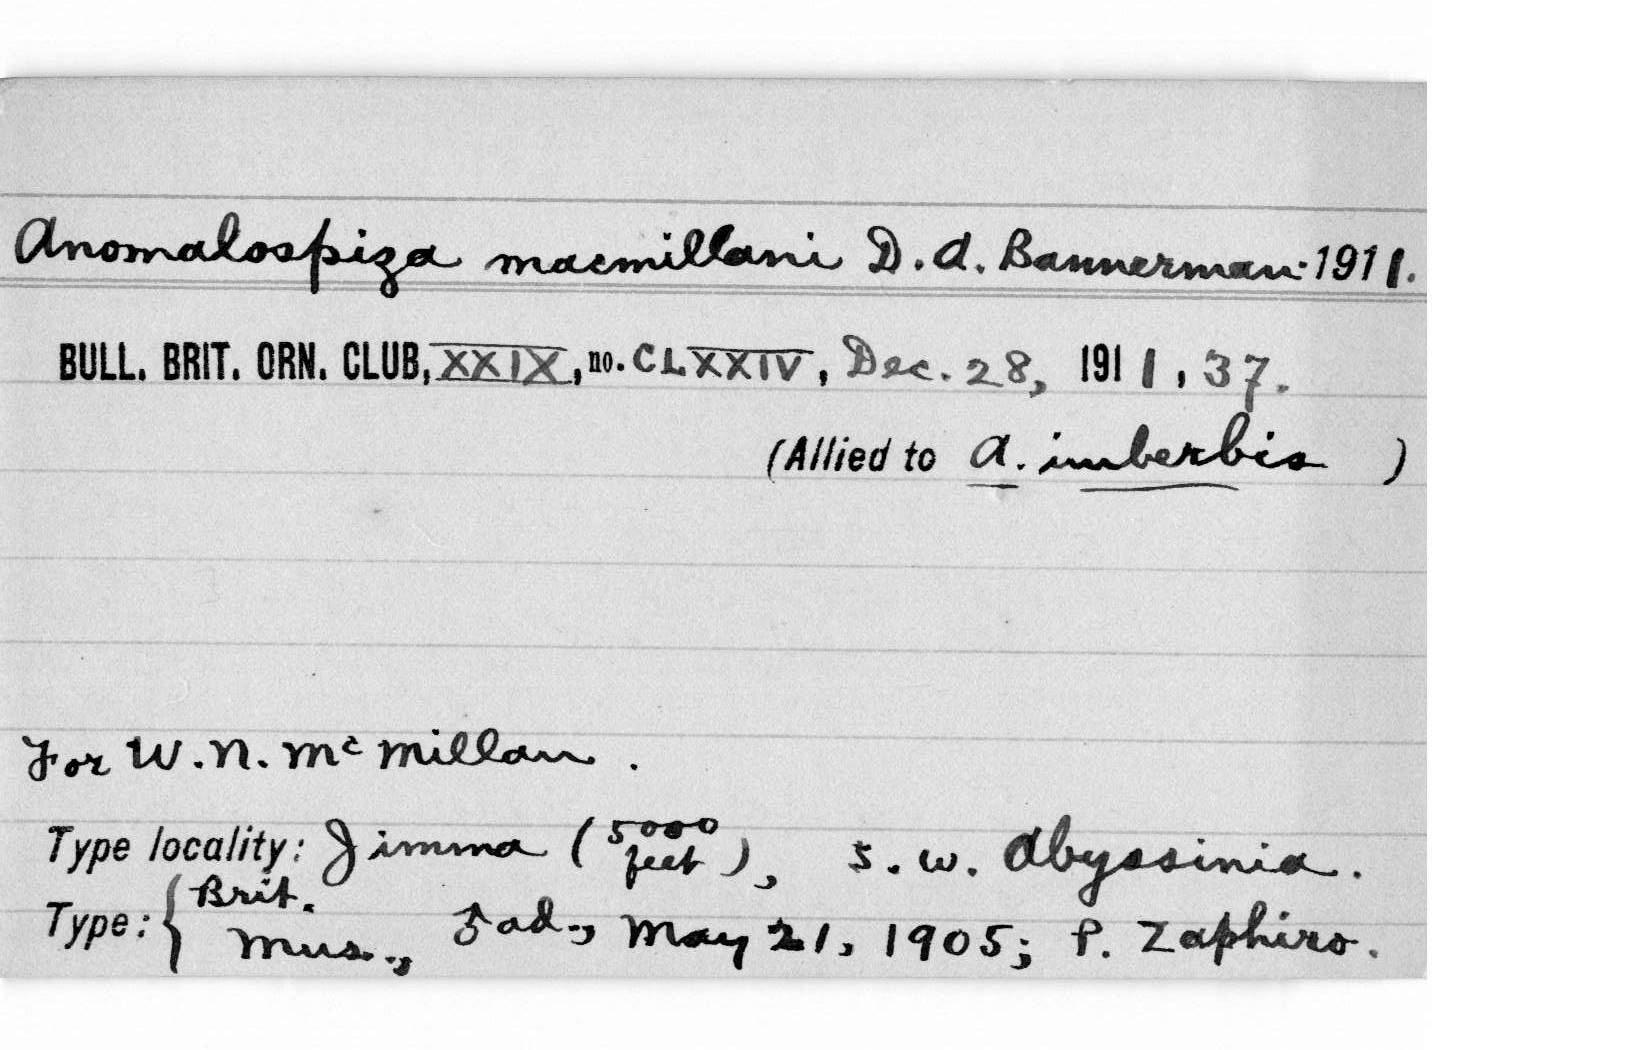 Anomalospiza macmillani D. A. Bannerman 1911.
BULL. BRIT. ORN. CLUB, XXIX, no. CLXXIV, Dec. 28, 1911, 37.
(Allied to A. imberbis )
For W. N. McMillan.
Type locality: Jimma (5000 feet), S. W. Abyssinia.
Type: { Brit. Mus., ♂ ad., May 21, 1905; P. Zaphiro.